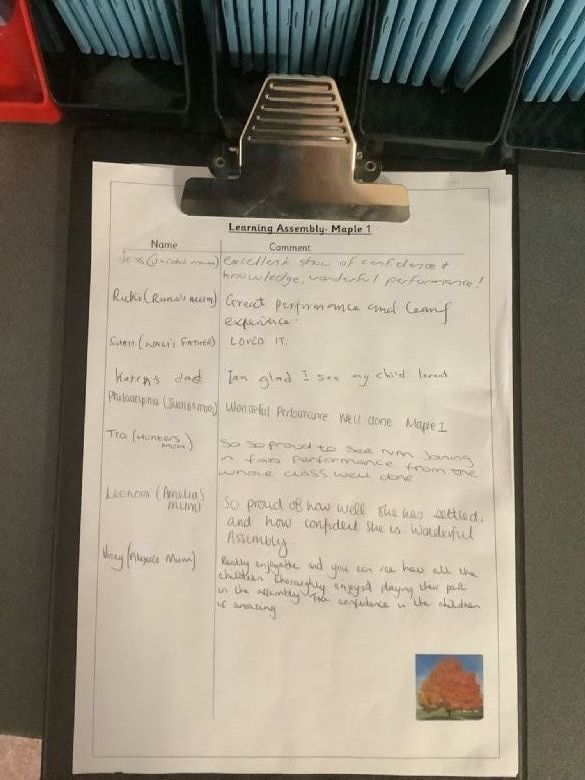 Learning Assembly- Maple 1
Name Comment
Jess (Jacobs mum) excellent show of confidence +
knowledge, wonderful performance!
Ricki (Runo's mum) Great performance and
experience.
(WALI'S FATHER) LOVED IT.
Karen's dad Iam glad I see my child
Philadelphia (Justins mom) Wonderful Performance. Well done Maple 1
(Hunters Mom) So so proud to see him Joining
in performance from the
whole class well done
Leonora (Amelia's mum) So proud of how well she has settled,
and how confident she is Wonderful
Assembly.
(Alexa's Mum) Really enjoyable and you can see how all the
children thoroughly enjoyed playing their part
in the assembly. The confidence in the children
is amazing